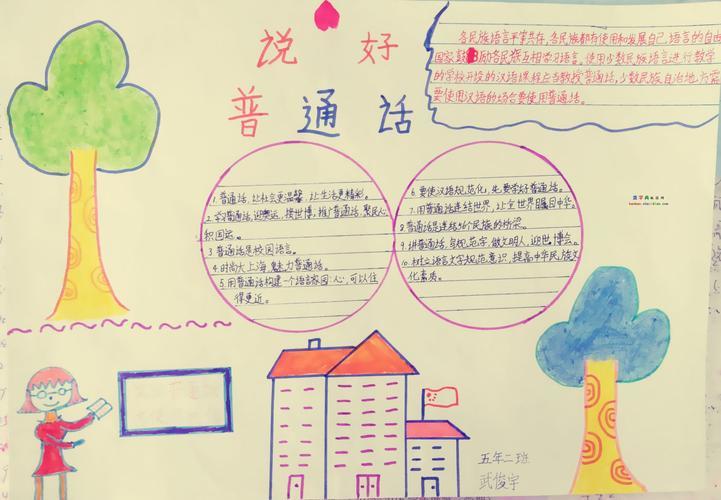 说好
普通话
各民族语言平等共存,各民族都有使用和发展自己语言的自由
国家鼓励各民族互相学习语言。使用少数民族语言进行教学
的学校开设的汉语课程应当教授普通话,少数民族自治地方需
要使用汉语的场合要使用普通话。
1.普通话,让社会更温馨,让生活更精彩。
2.学普通话,迎奥运,接世博,推广普通话,聚民心
积国运。
3.普通话是校园语言。
4.时尚大上海,魅力普通话。
5.用普通话构建一个语言家园“心”可以住
得更近。
6.要使汉语规范化,先要学好普通话。
7.用普通话连结世界,让全世界瞩目中华。
8.普通话是连结56个民族的桥梁。
9.讲普通话,写规范字,做文明人,迎世博会。
10.树立语言文字规范意识,提高中华民族文
化素质。
五年二班
武俊宇